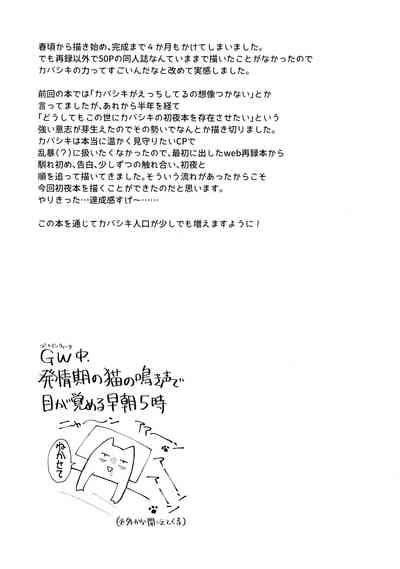 春頃から描き始め、完成まで４か月もかけてしまいました。
でも再録以外で50Pの同人誌なんていままで描いたことがなかったので
カバシキの力ってすごいんだなと改めて実感しました。
前回の本では「カバシキがえっちしてるの想像つかない」とか
言ってましたが、あれから半年を経て
「どうしてもこの世にカバシキの初夜本を存在させたい」という
強い意志が芽生えたのでその勢いでなんとか描き切りました。
カバシキは本当に温かく見守りたいCPで
乱暴（？）に扱いたくなかったので、最初に出したweb再録本から
馴れ初め、告白、少しずつの触れ合い、初夜と
順を追って描いてきました。そういう流れがあったからこそ
今回初夜本を描くことができたのだと思います。
やりきった…達成感すげ〜……
この本を通じてカバシキ人口が少しでも増えますように！
ゴールデンウィーク
GW中、
発情期の猫の鳴き声で
目が覚める早朝5時
ニャーーン
アァーーン
アァーーン
ねかせて
(※外から聞こえてくる)